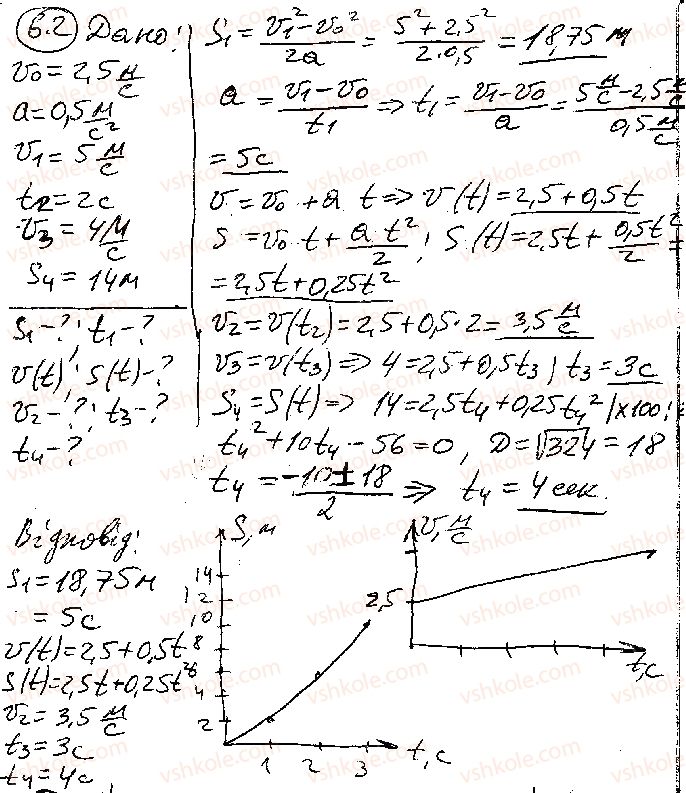 6.2 Дано:
v₀ = 2,5 м/с
a = 0,5 м/с²
v₁ = 5 м/с
t₂ = 2с
v₃ = 4 м/с
S₄ = 14 м
S₁ - ? ; t₁ - ?
v(t)' S(t) - ?
v₂ - ? ; t₃ - ?
t₄ - ?
S₁ = (v₁² - v₀²)/2a = (5² + 2,5²)/(2·0,5) = 18,75 м
a = (v₁ - v₀)/t₁ => t₁ = (v₁ - v₀)/a = (5 м/с - 2,5 м/с)/(0,5 м/с)
= 5с
v = v₀ + a t => v(t) = 2,5 + 0,5t
S = v₀ t + (a t²)/2 ; S(t) = 2,5t + (0,5t²)/2 =
= 2,5t + 0,25t²
v₂ = v(t₂) = 2,5 + 0,5·2 = 3,5 м/с
v₃ = v(t₃) => 4 = 2,5 + 0,5t₃ | t₃ = 3с
S₄ = S(t) => 14 = 2,5t₄ + 0,25t₄² | x100:
t₄² + 10t₄ - 56 = 0, D = √324 = 18
t₄ = (-10 ± 18)/2 => t₄ = 4 сек.
Відповід:
S₁ = 18,75 м
= 5с
v(t) = 2,5 + 0,5t
S(t) = 2,5t + 0,25t²
v₂ = 3,5 м/с
t₃ = 3с
t₄ = 4с
S, м
14
12
10
8
6
4
2
1 2 3 t, с
v, м/с
2,5
t, с
vshkole.com